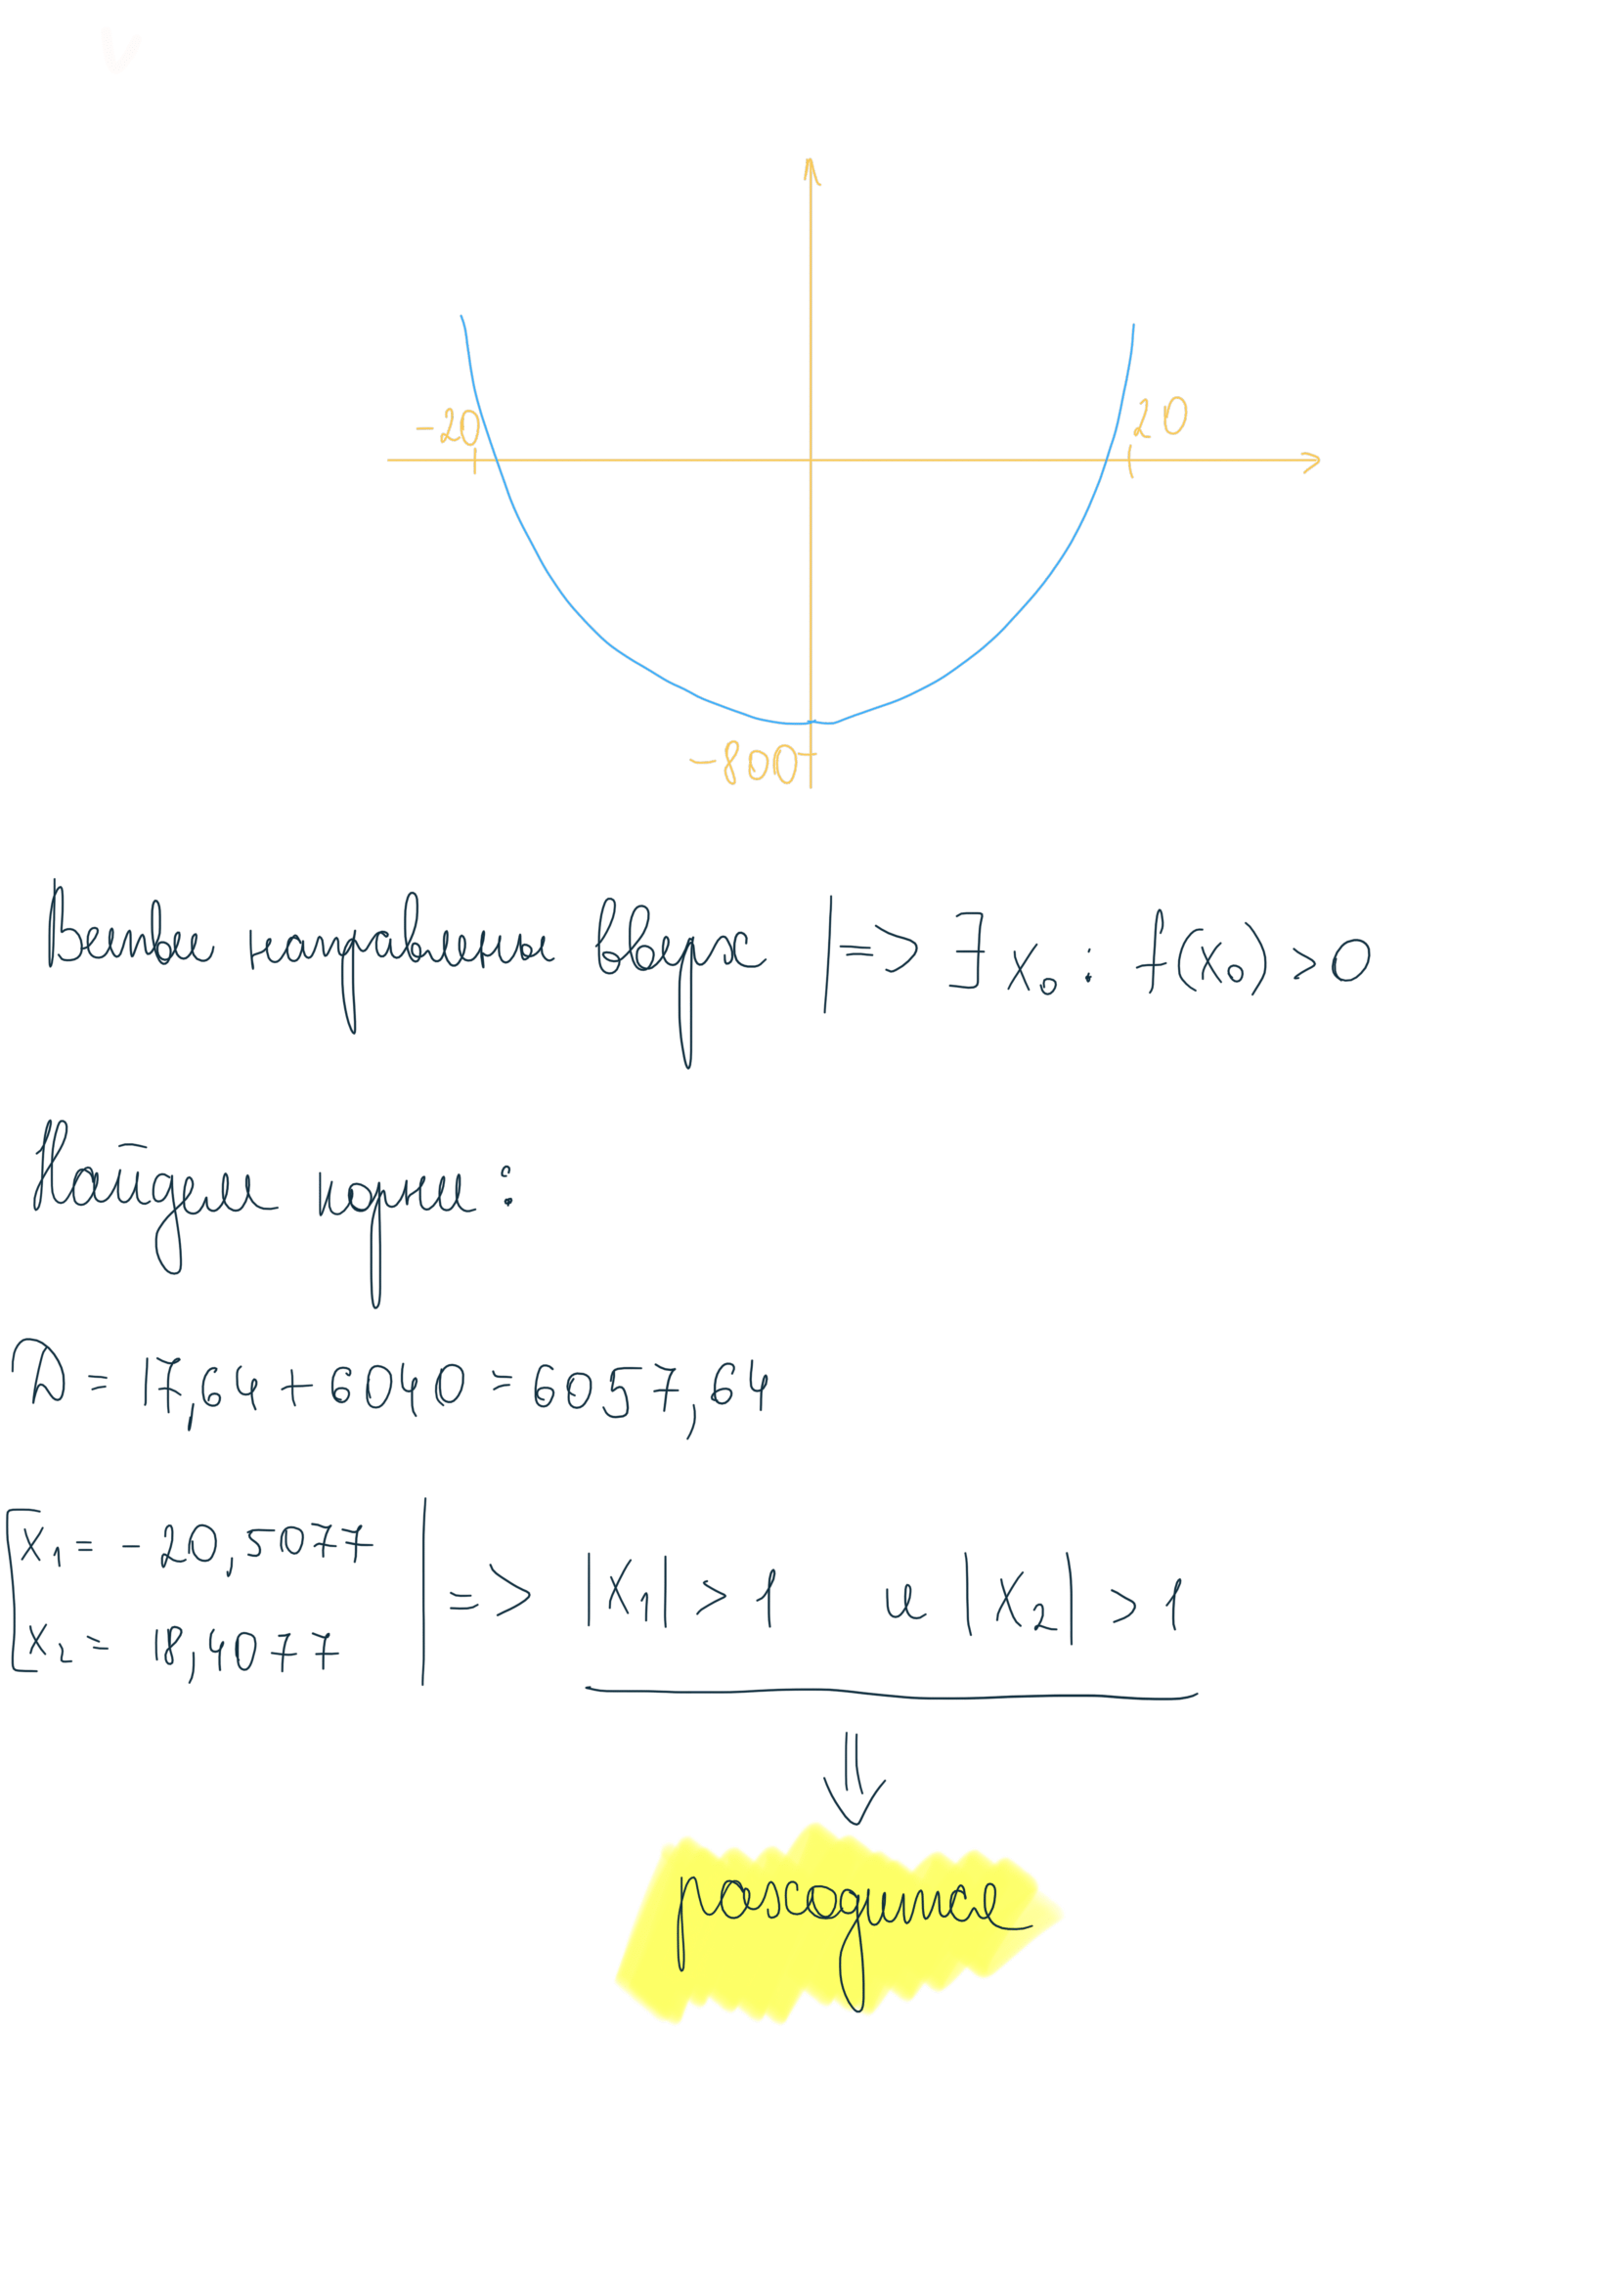 -20
20
-800
Ветви направлены вверх | => ∃ x₀ : f(x₀) > 0
Найдем корни :
D = 17,64 + 6040 = 6057,64
[ x₁ = - 20,5077
x₂ = 18,4077 | => |x₁| > 1 и |x₂| > 1
⇓
расходится